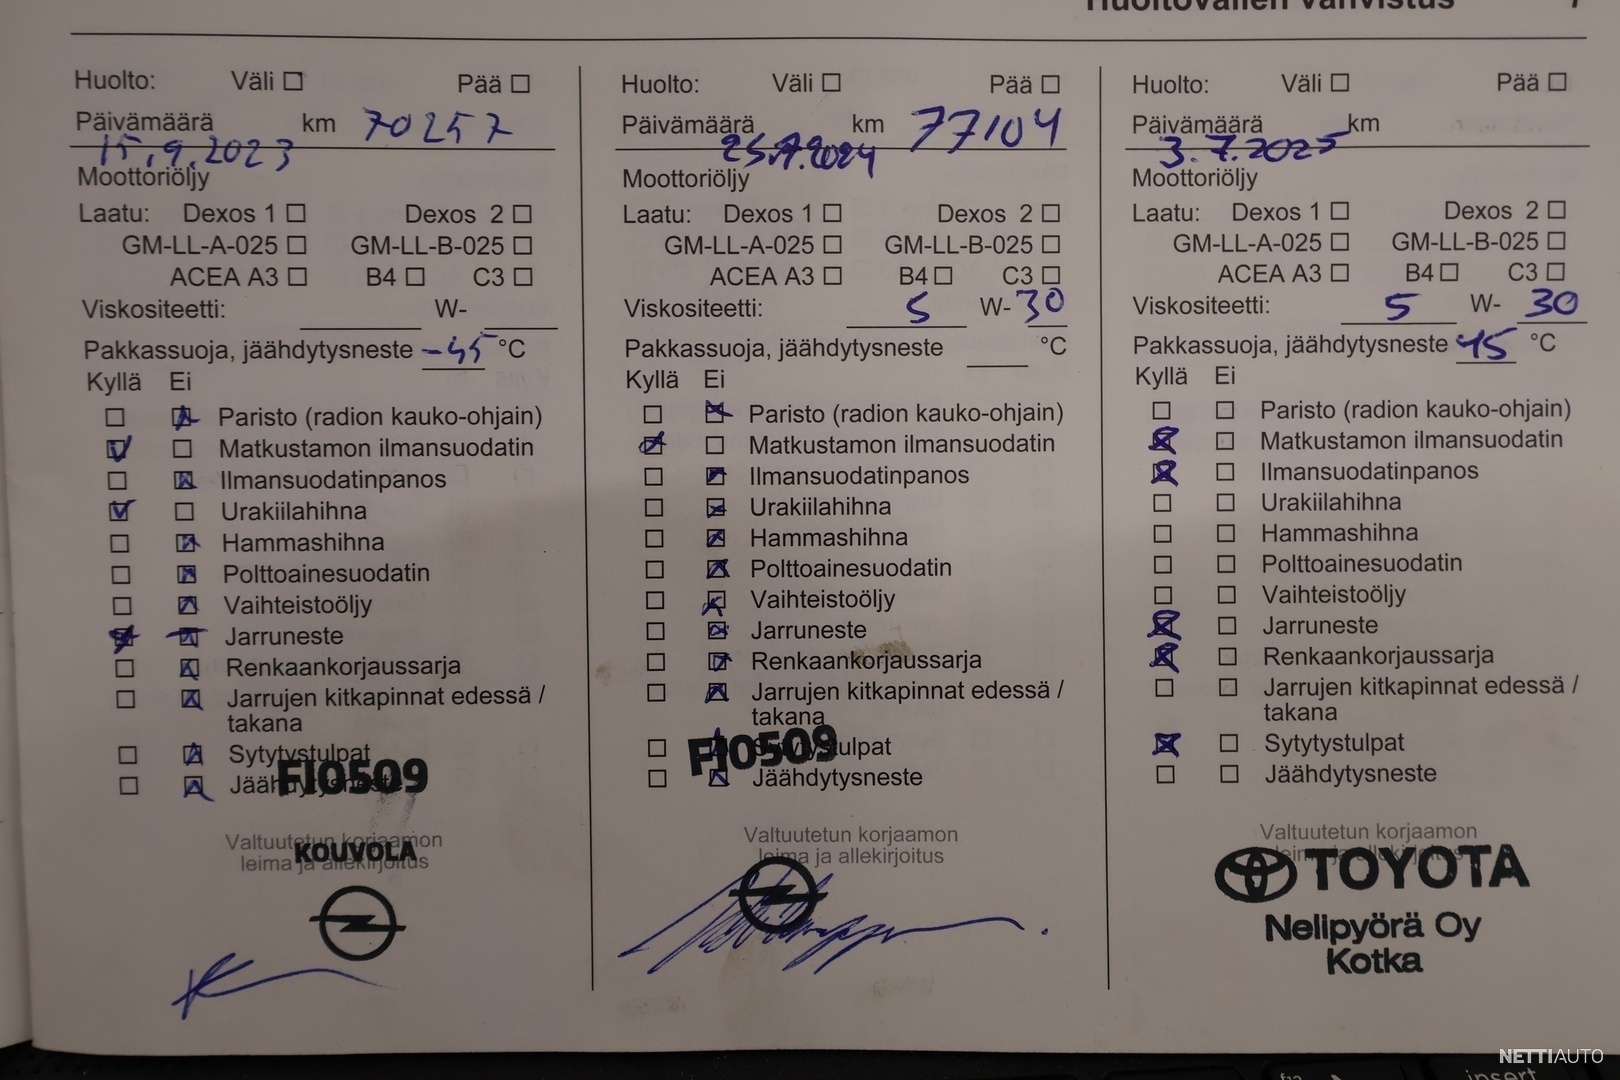 Huoltovälien vahvistus
Huolto: Väli Pää
Päivämäärä km 70257
15.9.2023
Moottoriöljy
Laatu: Dexos 1 Dexos 2
GM-LL-A-025 GM-LL-B-025
ACEA A3 B4 C3
Viskositeetti: W-
Pakkassuoja, jäähdytysneste -45 °C
Kyllä Ei
Paristo (radion kauko-ohjain)
Matkustamon ilmansuodatin
Ilmansuodatinpanos
Urakiilahihna
Hammashihna
Polttoainesuodatin
Vaihteistoöljy
Jarruneste
Renkaankorjaussarja
Jarrujen kitkapinnat edessä /
takana
Sytytystulpat
FI0509
Jäähdytysneste
Valtuutetun korjaamon
KOUVOLA
leima ja allekirjoitus
Huolto: Väli Pää
Päivämäärä km 77104
25.7.2024
Moottoriöljy
Laatu: Dexos 1 Dexos 2
GM-LL-A-025 GM-LL-B-025
ACEA A3 B4 C3
Viskositeetti: 5 W- 30
Pakkassuoja, jäähdytysneste °C
Kyllä Ei
Paristo (radion kauko-ohjain)
Matkustamon ilmansuodatin
Ilmansuodatinpanos
Urakiilahihna
Hammashihna
Polttoainesuodatin
Vaihteistoöljy
Jarruneste
Renkaankorjaussarja
Jarrujen kitkapinnat edessä /
takana
FI0509
Sytytystulpat
Jäähdytysneste
Valtuutetun korjaamon
leima ja allekirjoitus
Huolto: Väli Pää
Päivämäärä km
3.7.2025
Moottoriöljy
Laatu: Dexos 1 Dexos 2
GM-LL-A-025 GM-LL-B-025
ACEA A3 B4 C3
Viskositeetti: 5 W- 30
Pakkassuoja, jäähdytysneste 45 °C
Kyllä Ei
Paristo (radion kauko-ohjain)
Matkustamon ilmansuodatin
Ilmansuodatinpanos
Urakiilahihna
Hammashihna
Polttoainesuodatin
Vaihteistoöljy
Jarruneste
Renkaankorjaussarja
Jarrujen kitkapinnat edessä /
takana
Sytytystulpat
Jäähdytysneste
Valtuutetun korjaamon
leima ja allekirjoitus
TOYOTA
Nelipyörä Oy
Kotka
NETTIAUTO
insert